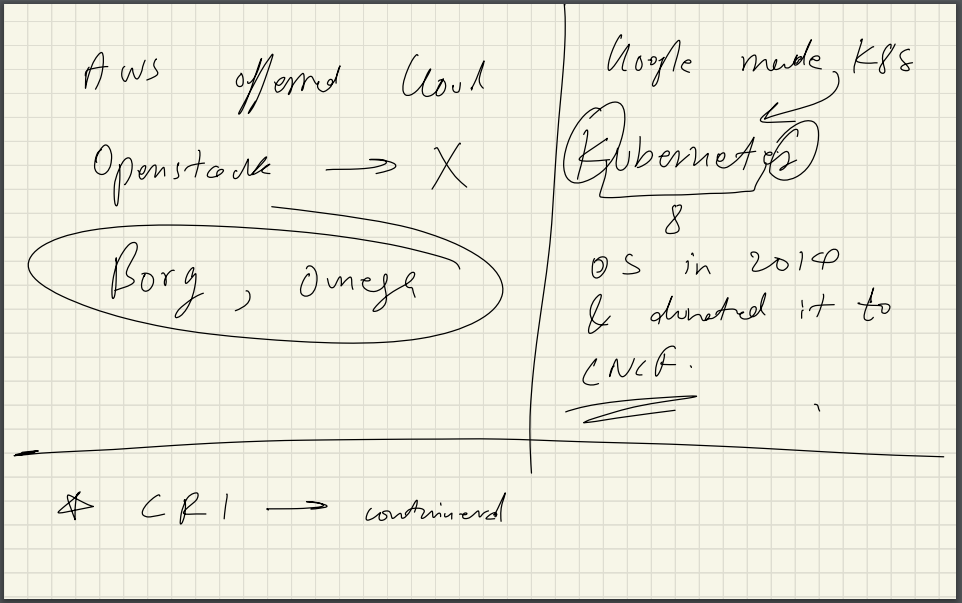 AWS offered Cloud
Openstack → X
Borg, Omega
Google made K8s
Kubernetes
8
OS in 2014
& donated it to
CNCF.
* CRI → containerd